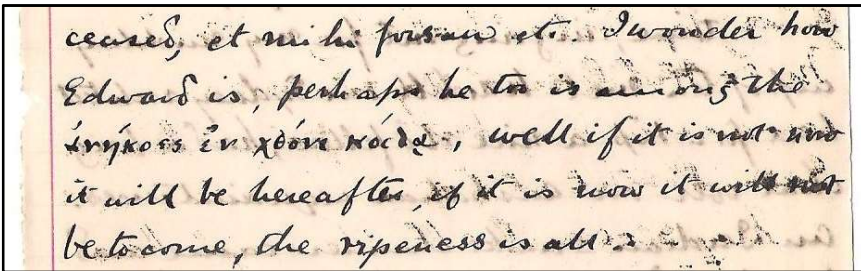 ceased, et mihi forsan etc. I wonder how
Edward is, perhaps he too is among the
ἐν χθόνι, well if it is not now
it will be hereafter, if it is now it will not
be to come, the ripeness is all.